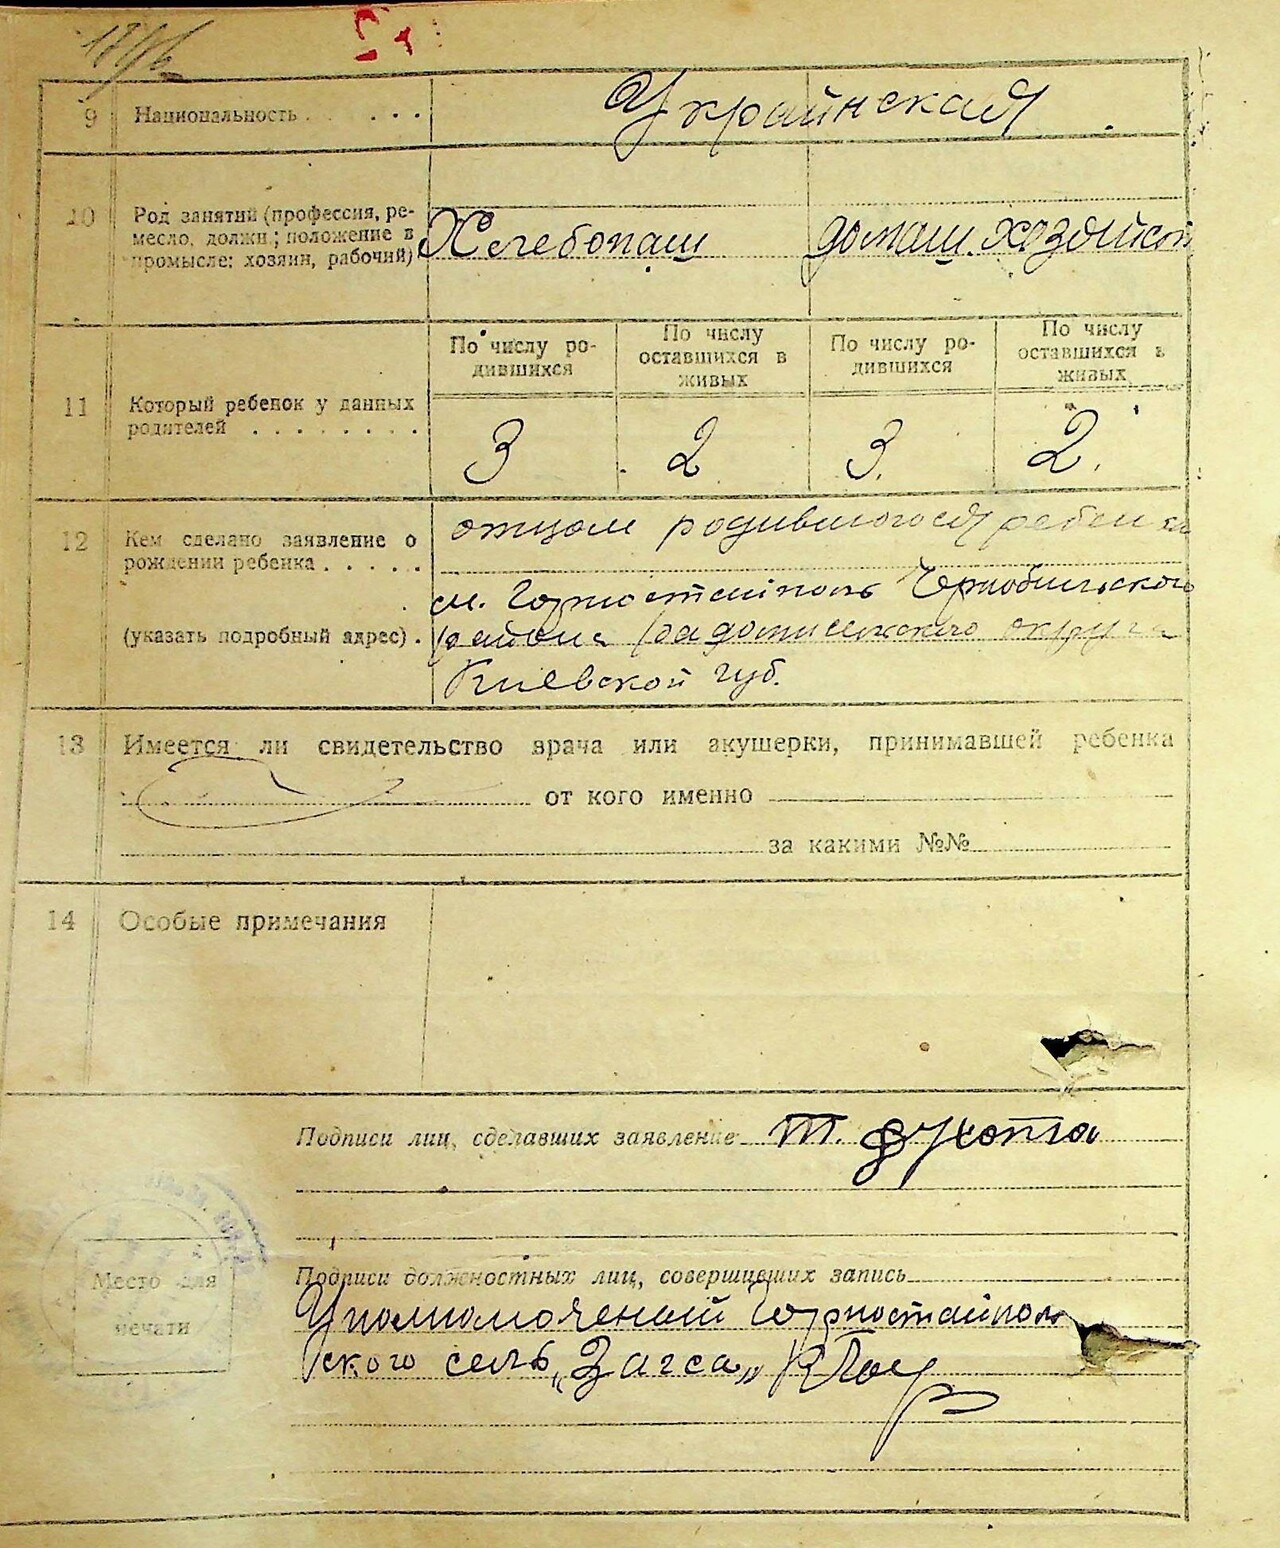 9 Национальность Украинская
10 Род занятий (профессия, ре-
месло, должн.; положение в
промысле: хозяин, рабочий)
Хлебопаш домаш. хозяйкой
По числу ро-
дившихся
По числу
оставшихся в
живых
По числу ро-
дившихся
По числу
оставшихся в
живых
11 Который ребенок у данных
родителей
3 2 3. 2.
12 Кем сделано заявление о
рождении ребенка
отцом родившогося ребенка
м. Горностайполь Чернобильского
(указать подробный адрес) района округа
Киевской губ.
13 Имеется ли свидетельство врача или акушерки, принимавшей ребенка
от кого именно
за какими №№
14 Особые примечания
Подписи лиц, сделавших заявление Т. Духота
Подписи должностных лиц, совершивших запись
Место для
печати
Уполномоченый Горностайполь
ского сель „Загса„